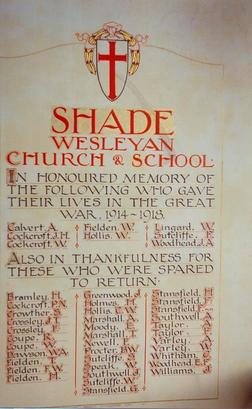 SHADE
WESLEYAN
CHURCH & SCHOOL
IN HONOURED MEMORY OF
THE FOLLOWING WHO GAVE
THEIR LIVES IN THE GREAT
WAR, 1914-1918.
Calvert. A. Fielden. W. Lingard. W.
Cockcroft. J.H. Hollis. W. Sutcliffe. F.
Cockcroft. W. Woodhead. J.A
ALSO IN THANKFULNESS FOR
THESE WHO WERE SPARED
TO RETURN.
Bramley. H. Greenwood. J Stansfield. H.
Cockcroft. Holmes. Stansfield.
Crowther. Hollis. C.W. Stansfield.
Crossley. Marshall. Southwell.
Crossley. Moody. Taylor.
Coupe. Marshall. Taylor.
Coupe. Nowell. F. Varley.
Dawson. W.A. Procter. Varley.
Fielden. Sutcliffe. Whitham.
Fielden. F.W. Speak. Woodhead.
Fielden. H. Southwell. Williams. J
Sutcliffe. W.
Stansfield. G.